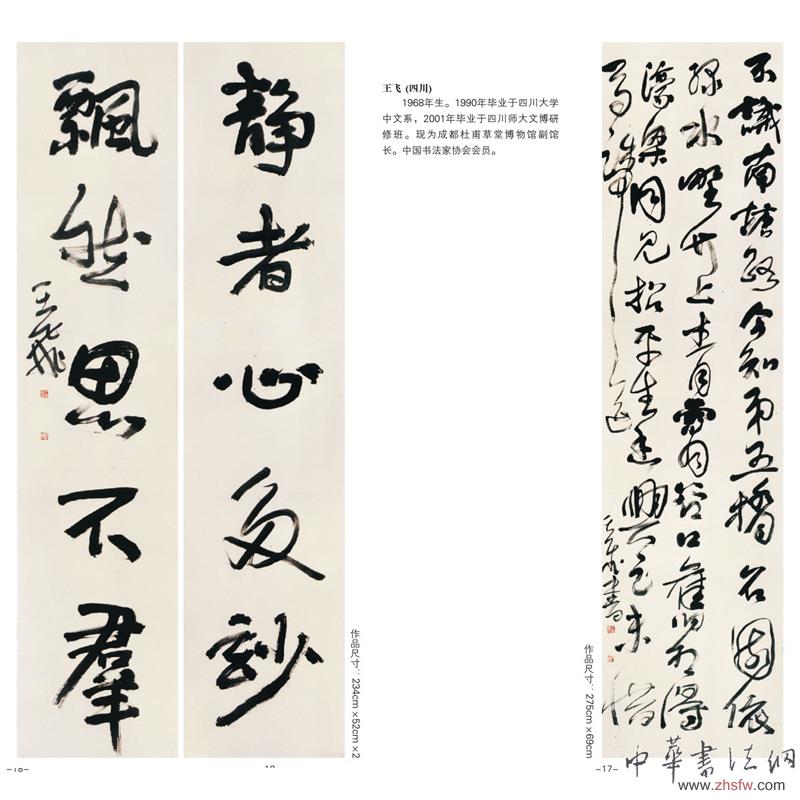 静者心多妙
飄然思不羣
王飛
作品尺寸：234cm×52cm×2
王飞 (四川)
1968年生。1990年毕业于四川大学
中文系，2001年毕业于四川师大文博研
修班。现为成都杜甫草堂博物馆副馆
长。中国书法家协会会员。
不識南塘路今知第五橋名園依
綠水野竹上青霄谷口舊相得
濠梁同見招平生為幽興未惜
馬蹄遥
王飛書
作品尺寸：275cm×69cm
-18-
-17-
中華書法網
www.zhsfw.com